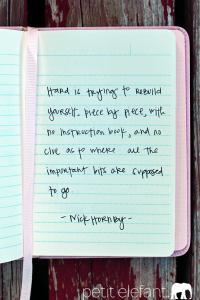 Hard is trying to rebuild
yourself, piece by piece, with
no instruction book, and no
clue as to where all the
important bits are supposed
to go.
- Nick Hornby -
petit elefant